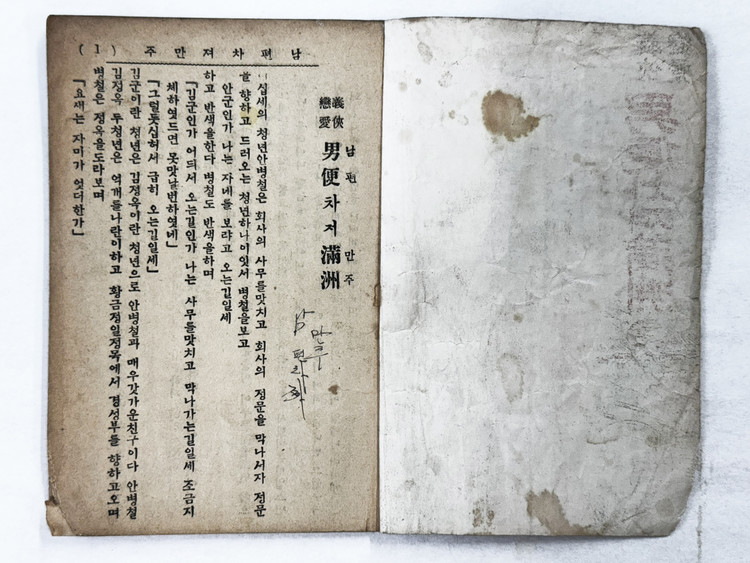 남편차져만주 (1)
義俠
戀愛
男便차저滿洲
남편 만주
만주
남편차
십세의 청년안병철은 회사의 사무를맛치고 회사의 정문을 막나서자 정문
을 향하고 드러오는 청년하나이잇서 병철을보고
안군인가 나는 자네를 보랴고 오는길일세
하고 반색을한다 병철도 반색을하며
「김군인가 어듸서 오는길인가 나는 사무를맛치고 막나가는길일세 조금지
체하엿드면 못맛날번하엿네」
「그럴듯십허서 급히 오는길일세」
김군이란 청년은 김정옥이란 청년으로 안병철과 매우갓가운친구이다 안병철
김정옥 두청년은 억개를나란이하고 황금정일정목에서 경성부를 향하고오며
병철은 정옥을도라보며
「요새는 자미가 엇더한가」